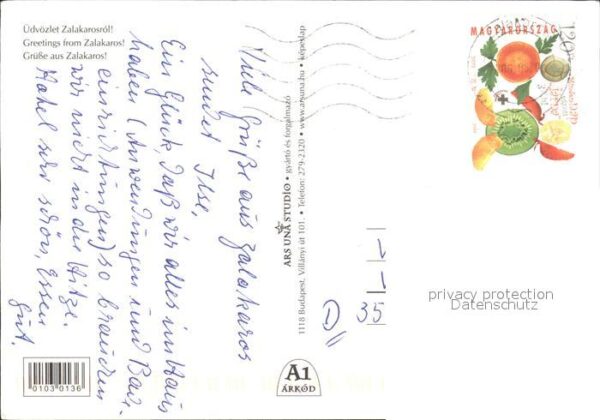 Üdvözlet Zalakarosról!
Greetings from Zalakaros!
Grüße aus Zalakaros!
Viele Grüße aus Zalakaros
sendet Ilse,
Ein Glück daß wir alles im Haus
haben (Anwendungen und Bade-
einrichtungen) so brauchen
wir nicht in die Hitze.
Hotel sehr schön, Essen
gut.
ARS UNA STUDIO • gyártó és forgalmazó
1118 Budapest, Villányi út 101. • Telefon: 279-2320 • www.arsuna.hu • képeslap
MAGYARORSZÁG
120
D
35
privacy protection
Datenschutz
A1
ÁRKÓD
01030136